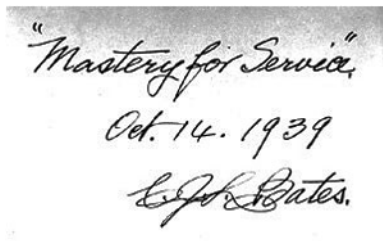 "Mastery for Service".
Oct. 14. 1939
C. J. L. Bates.